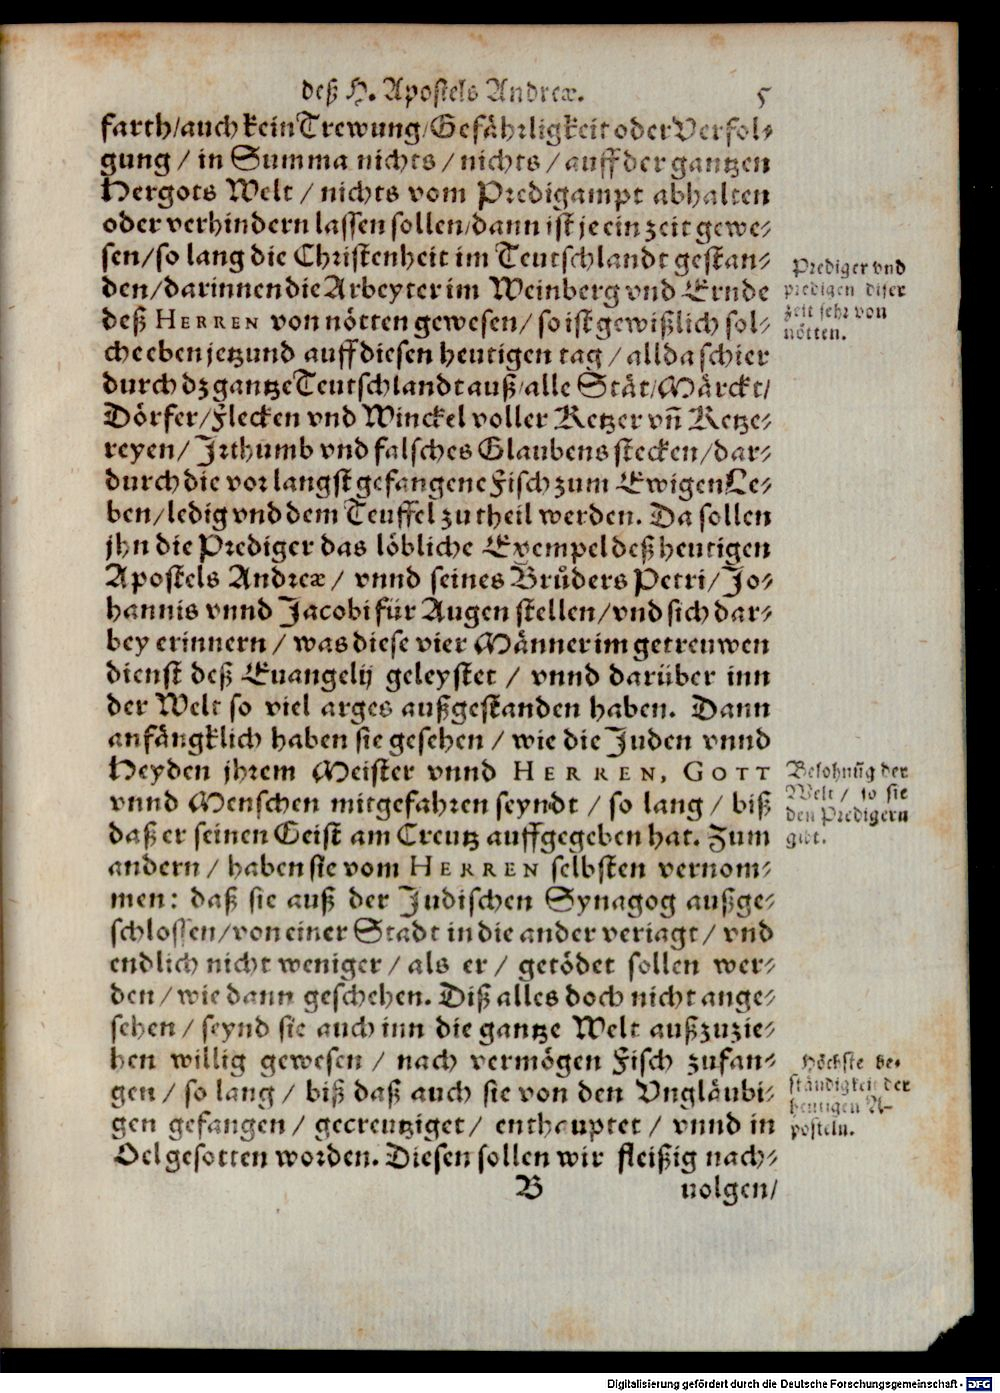 deß H. Apostels Andreæ. 5
farth/auch kein Trewung/Gefährligkeit oder Verfol-
gung / in Summa nichts / nichts / auff der gantzen
Hergots Welt / nichts vom Predigampt abhalten
oder verhindern lassen sollen/dann ist je ein zeit gewe-
sen/so lang die Christenheit im Teutschlandt gestan-
den/darinnen die Arbeyter im Weinberg vnd Ernde
deß HERREN von nötten gewesen/so ist gewißlich sol-
che eben jetzund auff diesen heutigen tag/allda schier
durch dz gantze Teutschlandt auß/alle Stät/Märckt/
Dörfer/Flecken vnd Winckel voller Ketzer vñ Ketze-
reyen/Irthumb vnd falsches Glaubens stecken/dar-
durch die vor langst gefangene Fisch zum Ewigen Le-
ben/ledig vnd dem Teuffel zu theil werden. Da sollen
jhn die Prediger das löbliche Exempel deß heutigen
Apostels Andreæ / vnnd seines Brůders Petri/Jo-
hannis vnnd Jacobi für Augen stellen/vnd sich dar-
bey erinnern / was diese vier Männer im getreuwen
dienst deß Euangelij geleystet / vnnd darüber inn
der Welt so viel arges außgestanden haben. Dann
anfängklich haben sie gesehen / wie die Juden vnnd
Heyden jhrem Meister vnnd HERREN, GOTT
vnnd Menschen mitgefahren seyndt / so lang / biß
daß er seinen Geist am Creutz auffgegeben hat. Zum
andern / haben sie vom HERREN selbsten vernom-
men: daß sie auß der Judischen Synagog außge-
schlossen/von einer Stadt in die ander veriagt / vnd
endlich nicht weniger / als er / getödet sollen wer-
den / wie dann geschehen. Diß alles doch nicht ange-
sehen / seynd sie auch inn die gantze Welt außzuzie-
hen willig gewesen / nach vermögen Fisch zufan-
gen / so lang / biß daß auch sie von den Vngläubi-
gen gefangen / gecreutziget / enthauptet / vnnd in
Oel gesotten worden. Diesen sollen wir fleißig nach-
B uolgen/
Prediger vnd
predigen diser
zeit sehr von
nötten.
Belohnũg der
Welt / so sie
den Predigern
gibt.
Höchste be-
ständigkeit der
heutigen A-
posteln.
Digitalisierung gefördert durch die Deutsche Forschungsgemeinschaft - DFG